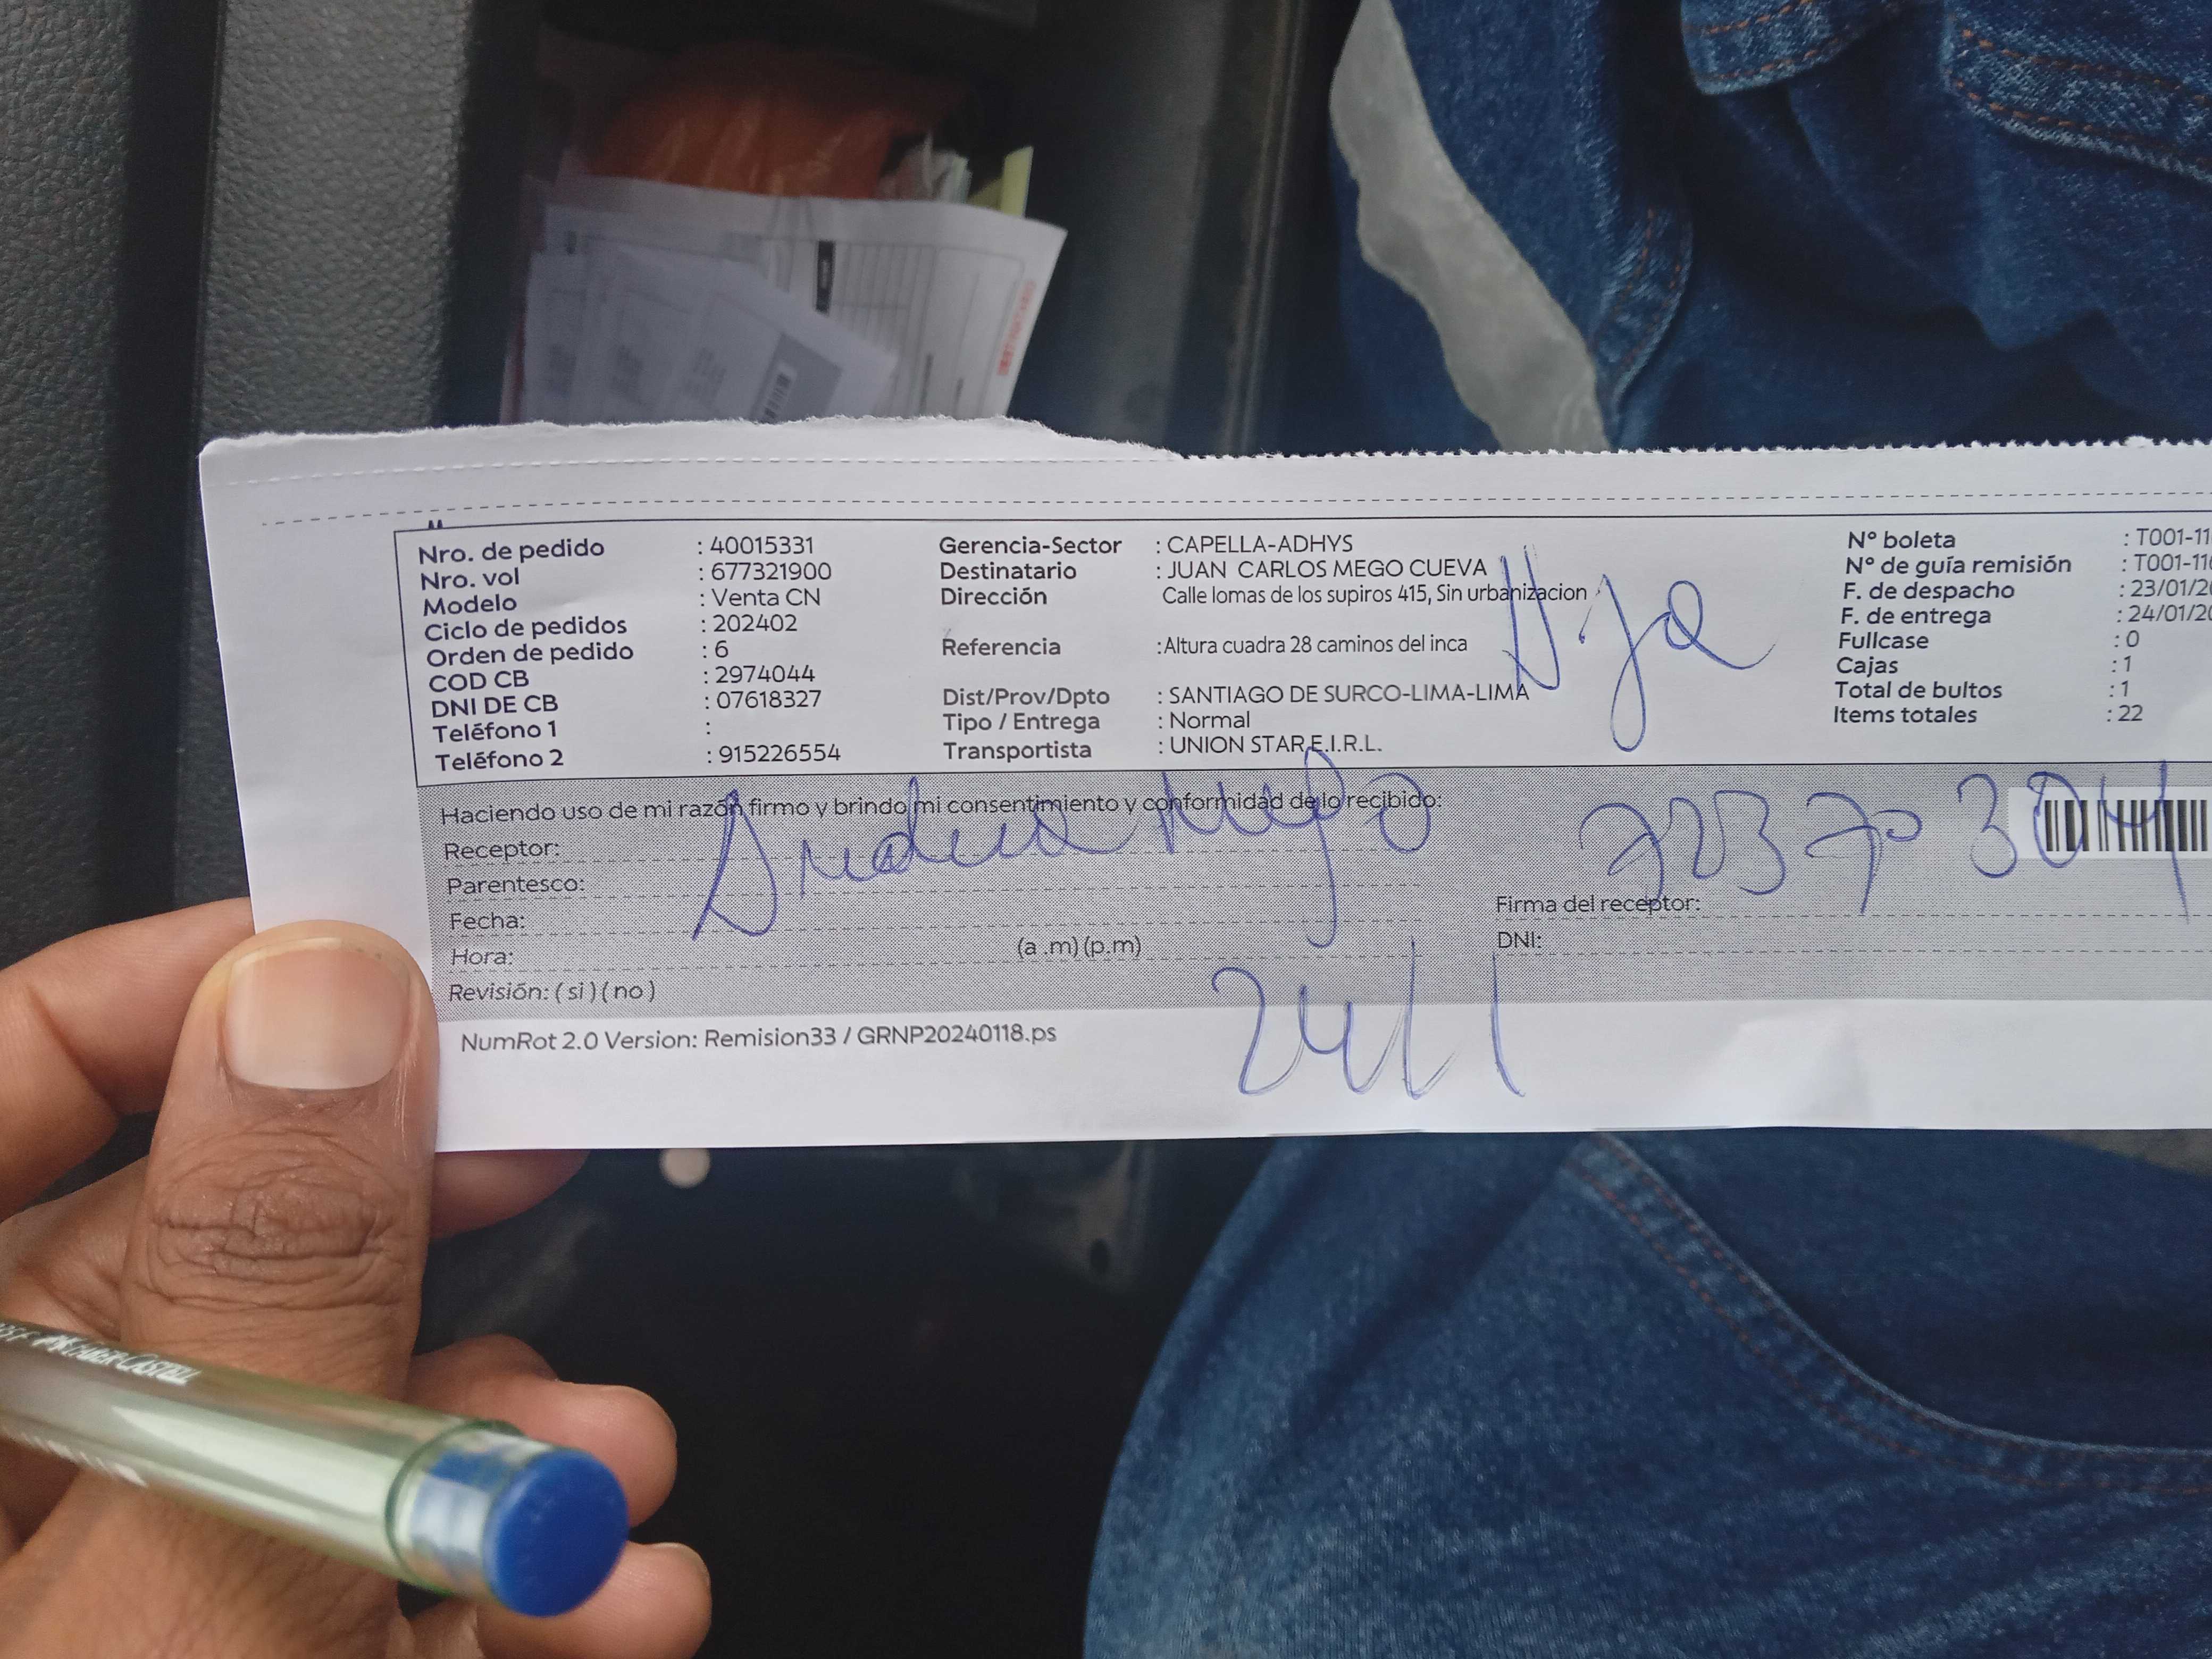 Nro. de pedido : 40015331
Nro. vol : 677321900
Modelo : Venta CN
Ciclo de pedidos : 202402
Orden de pedido : 6
COD CB : 2974044
DNI DE CB : 07618327
Teléfono 1 :
Teléfono 2 : 915226554
Gerencia-Sector : CAPELLA-ADHYS
Destinatario : JUAN CARLOS MEGO CUEVA
Dirección Calle lomas de los supiros 415, Sin urbanizacion
Referencia :Altura cuadra 28 caminos del inca
Dist/Prov/Dpto : SANTIAGO DE SURCO-LIMA-LIMA
Tipo / Entrega : Normal
Transportista : UNION STAR E.I.R.L.
Hija
N° boleta : T001-11
N° de guía remisión : T001-11
F. de despacho : 23/01/2
F. de entrega : 24/01/20
Fullcase : 0
Cajas : 1
Total de bultos : 1
Items totales : 22
Haciendo uso de mi razón firmo y brindo mi consentimiento y conformidad de lo recibido:
Receptor: Andrea Mego
Parentesco:
Fecha:
Hora: (a .m) (p.m)
Revisión: ( si ) ( no )
Firma del receptor:
DNI:
24/1
NumRot 2.0 Version: Remision33 / GRNP20240118.ps
FABER-CASTELL